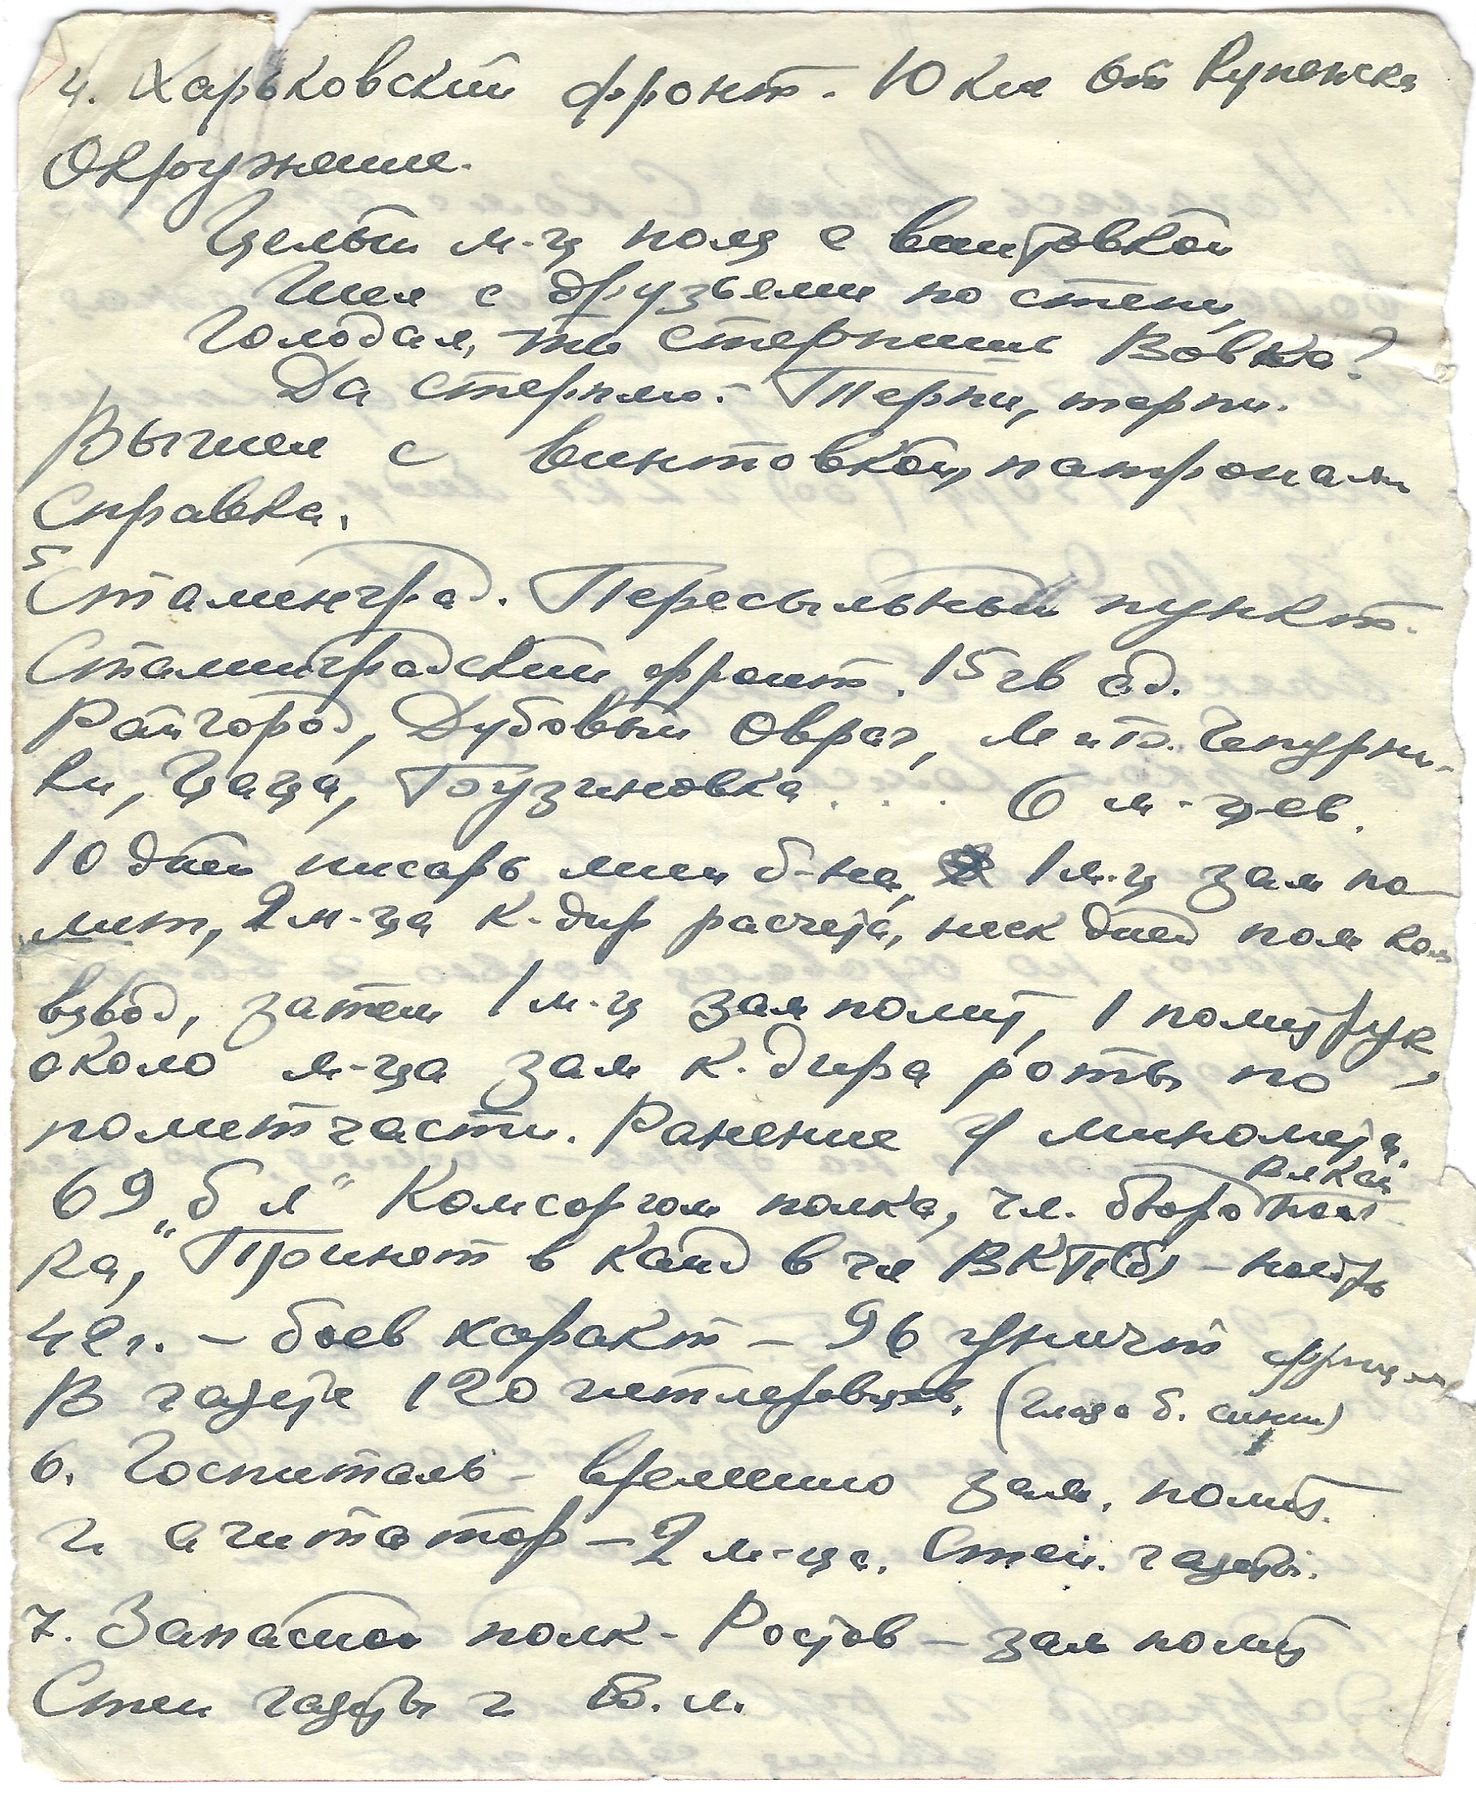 4. Харьковский фронт. 10 км от Купенска
Окружение.
Целый м-ц полз с винтовкой
Шел с друзьями по степи,
Голодал, ты стерпишь Вовка?
Да стерплю. - Терпи, терпи.
Вышел с винтовкой, патронами
справка.
5
Сталинград. Пересыльный пункт.
Сталинградский фронт. 15 гв сд.
Райгород, Дубовый Овраг, М и Б. Чепурни-
ки, Цаца, Бузиновка . . . 6 м-цев.
10 дней писарь мин б-на, 1 м-ц зам по-
лит, 2 м-ца к-дир расчета, неск дней пом ком
взвод, затем 1 м-ц зам полит, 1 политрук,
около м-ца зам к-дира роты по
политчасти. Ранение
69 „б л" Комсорг полка, чл. бюро
ка, Принят в канд в чл ВКП(б) - ноябрь
42 г. - боев характ - 96 уничт фрицев
В газете 120 гитлеровцев. (глаза б. синии)
6. Госпиталь - временно зам. полит.
и агитатор - 2 м-ца. Стен. газеты.
7. Запасной полк - Ростов - зам полит
Стен газеты и Б. л.